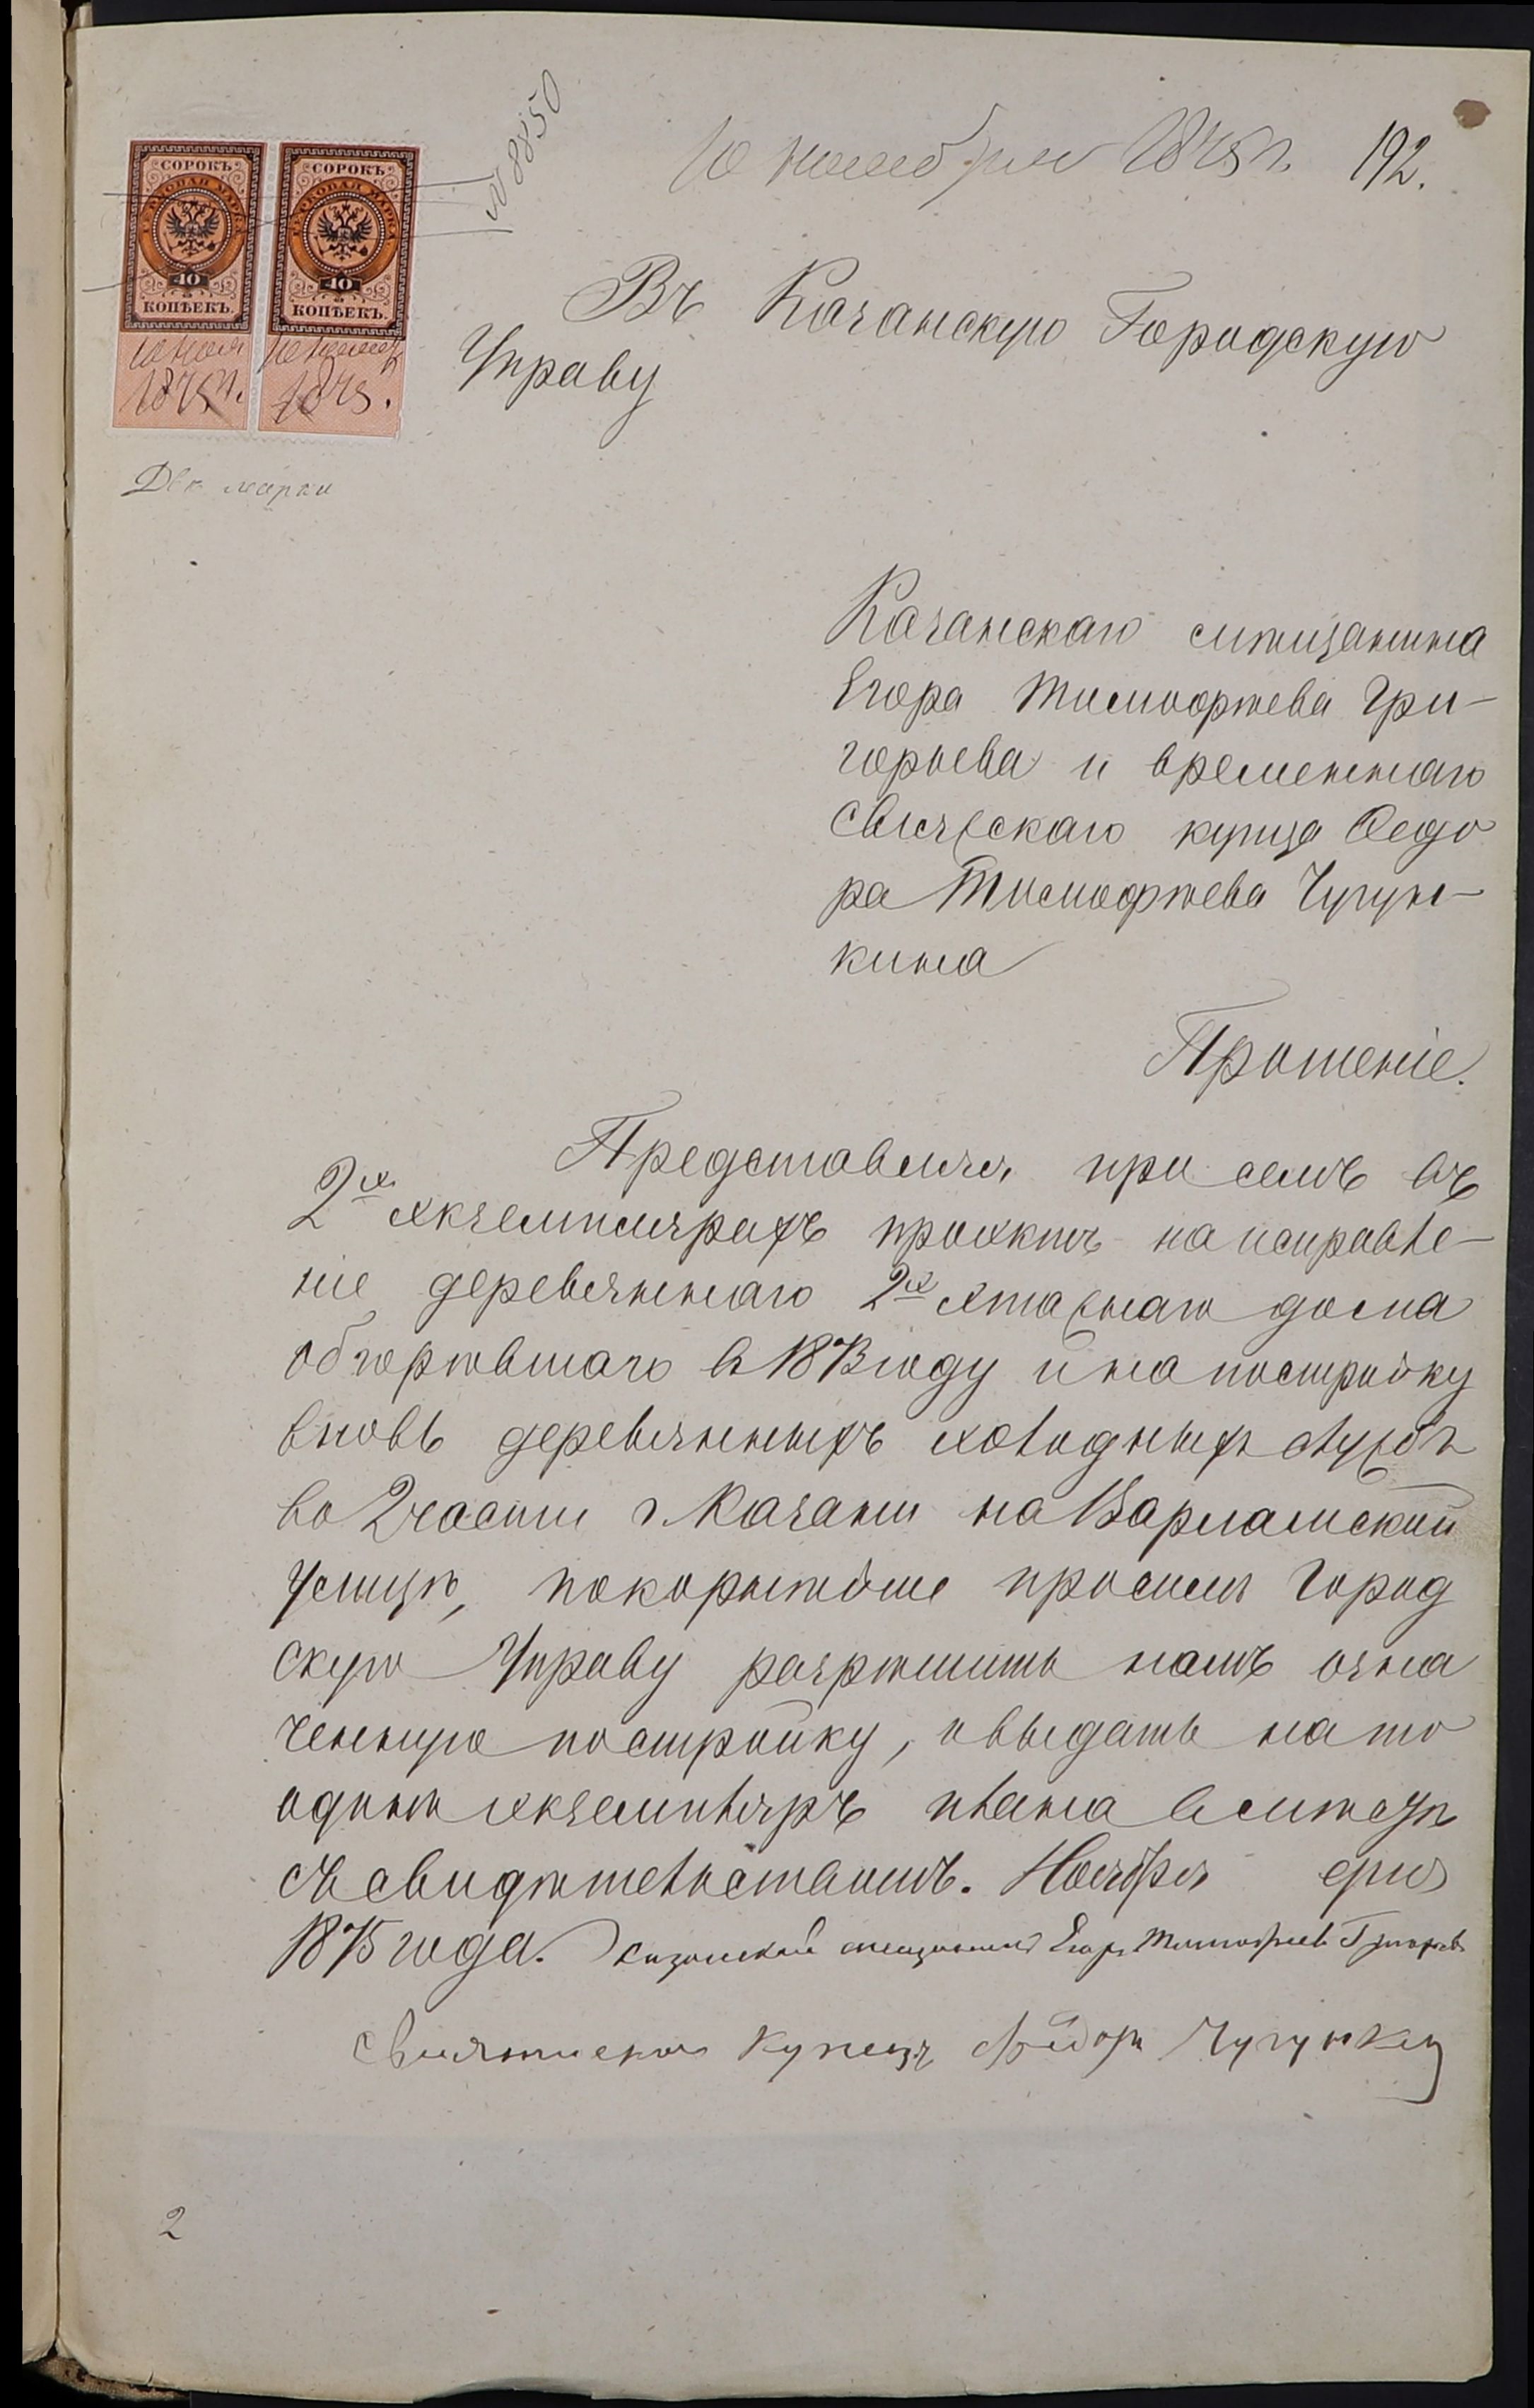 № 8850
10 ноября 1875 г. 192.
СОРОКЪ
ГЕРБОВАЯ МАРКА
40
КОПѢЕКЪ.
СОРОКЪ
ГЕРБОВАЯ МАРКА
40
КОПѢЕКЪ.
10 ноя
1875 г.
10 нояб
1875.
Двѣ марки
Въ Казанскую Городскую
Управу
Казанскаго мѣщанина
Егора Тимофѣева Гри-
горьева и временнаго
Свияжскаго купца Ѳедо
ра Тимофѣева Чугун-
кина
Прошеніе.
Представляя при семъ въ
2х экземплярахъ проэктъ на исправле-
ніе деревяннаго 2х этажнаго дома
обгорѣвшаго въ 1873 году и на постройку
вновь деревянныхъ холодныхъ службъ
во 2 части г. Казани на Варламской
улицѣ, покорнѣйше просимъ Город
скую Управу разрѣшить намъ озна
ченную постройку, и выдать на то
одинъ экземпляръ плана вмѣстѣ
съ свидѣтельствомъ. Ноября дня
1875 года. Казанский мещанинъ Егоръ Тимофеевъ Григорьевъ
Свияжской купецъ Федоръ Чугункин
2